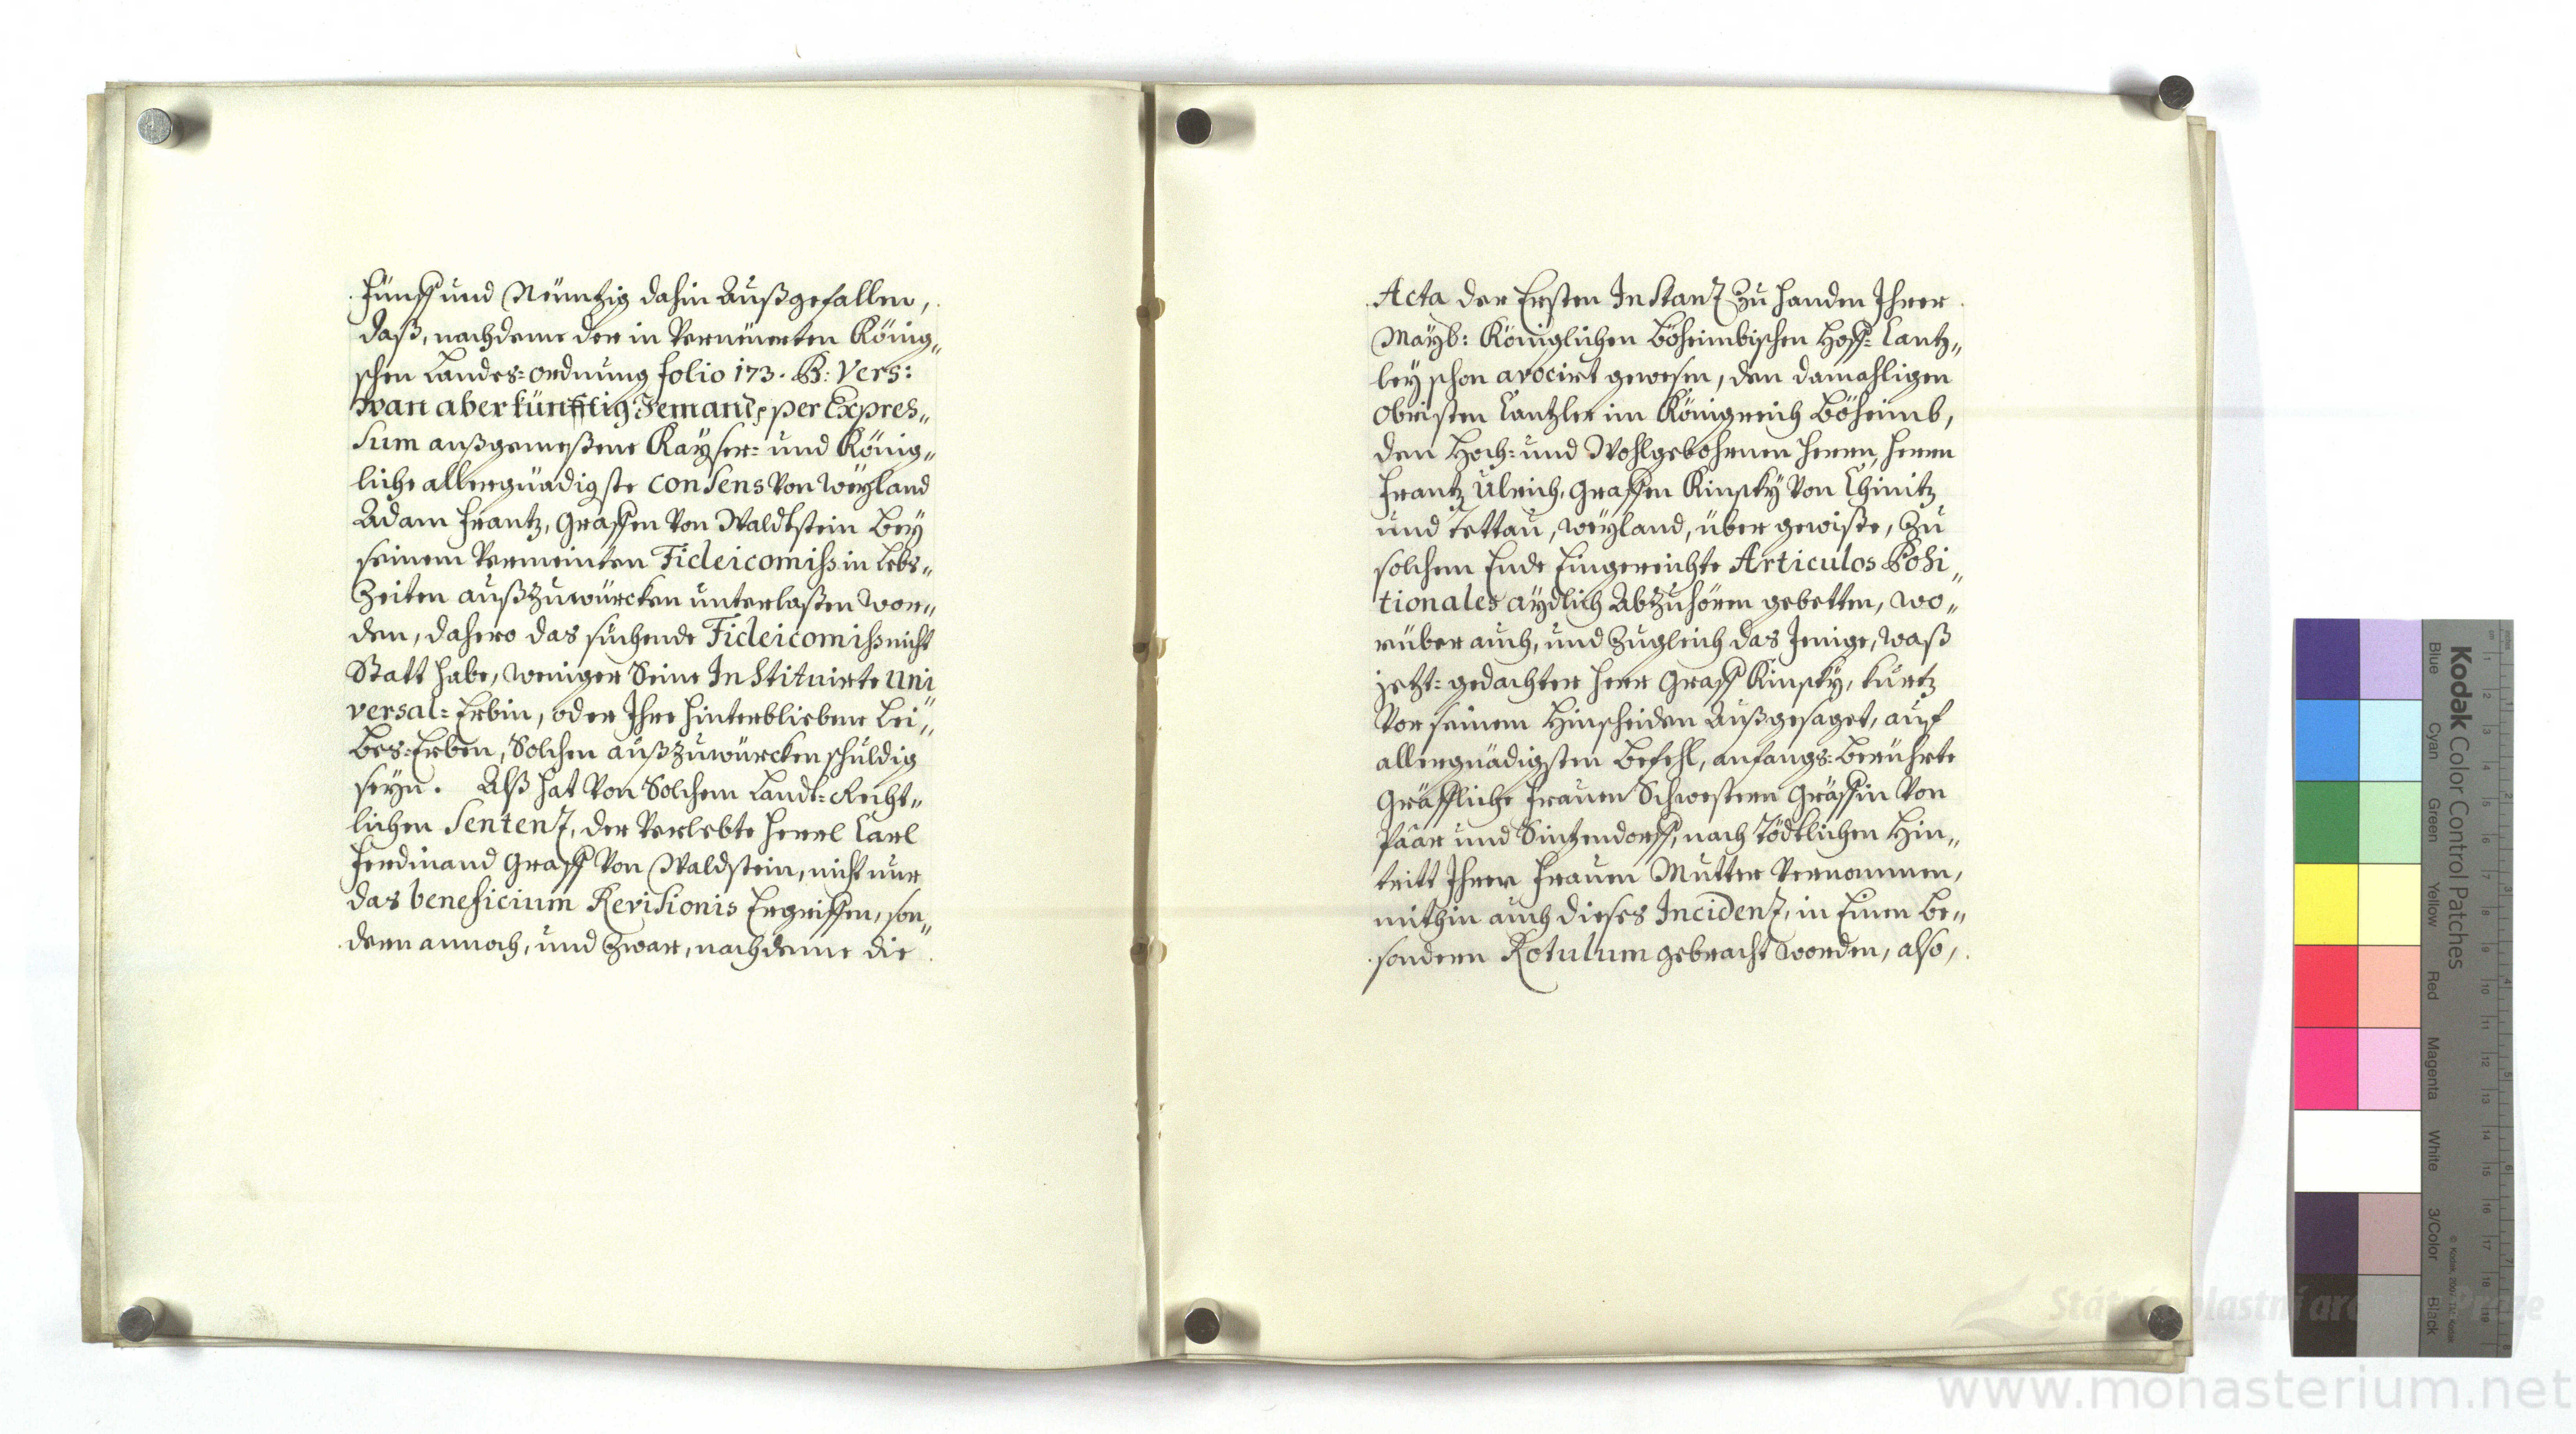 Fünff und Neüntzig dahin außgefallen,
daß, nachdeme der in Verneüerten König„
schen Landes=ordnung folio 173. B: Vers:
Wan aber künfftig Jemandt, per Expres„
sum außgemeßene Kayser= und König„
liche allergnädigste Consens Von Weyland
Adam Frantz, Graffen Von Waldtstein Bey
seinem Vermeinten Fideicomiss in Lebs„
Zeiten außzuwürcken unterlaßen wor„
den, dahero das suchende Fideicomiss nicht
Statt habe, weniger Seine Instituirte Uni„
versal=Erbin, oder Ihre hinterbliebene Lei„
bes=Erben, Solchen außzuwürcken schuldig
seyn. Alß hat Von Solchem Landt=Recht„
lichen Sentenz, der Verlebte Herrl Carl
Ferdinand Graff Von Waldstein, nicht nur
das beneficium Revisionis Ergriffen, son„
dern annoch, und zwar, nachdeme die
Acta der Ersten Instanz zu Handen Ihrer
Mayb: Königlichen Böheimbischen Hoff=Cantz„
ley schon avocirt gewesen, den damahligen
Obristen Cantzler im Königreich Böheimb,
den Hoch= und Wohlgebohrnen Herrn, Herrn
Frantz Ulrich, Graffen Kinsky Von Chinitz
und Tettau, weyland, über gewiße, zu
solchem Ende Eingereichte Articulos Posi„
tionales aydlich Abzuhören gebetten, wo„
rüber auch, und zugleich das Jenige, waß
jetzt=gedachter Herr Graff Kinsky, kurtz
Vor seinem Hinscheiden Außgesaget, auf
allergnädigsten Befehl, anfangs=Berührte
Gräffliche Frauen Schwestern Gräffin Von
Paar und Sintzendorff, nach Tödtlichen Hin„
tritt Ihrer Frauen Mutter Vernommen,
mithin auch dieses Incidenz, in Einen Be„
sondern Rotulum gebracht worden, also,
Kodak Color Control Patches
Blue Cyan Green Yellow Red Magenta White 3/Color Black
www.monasterium.net